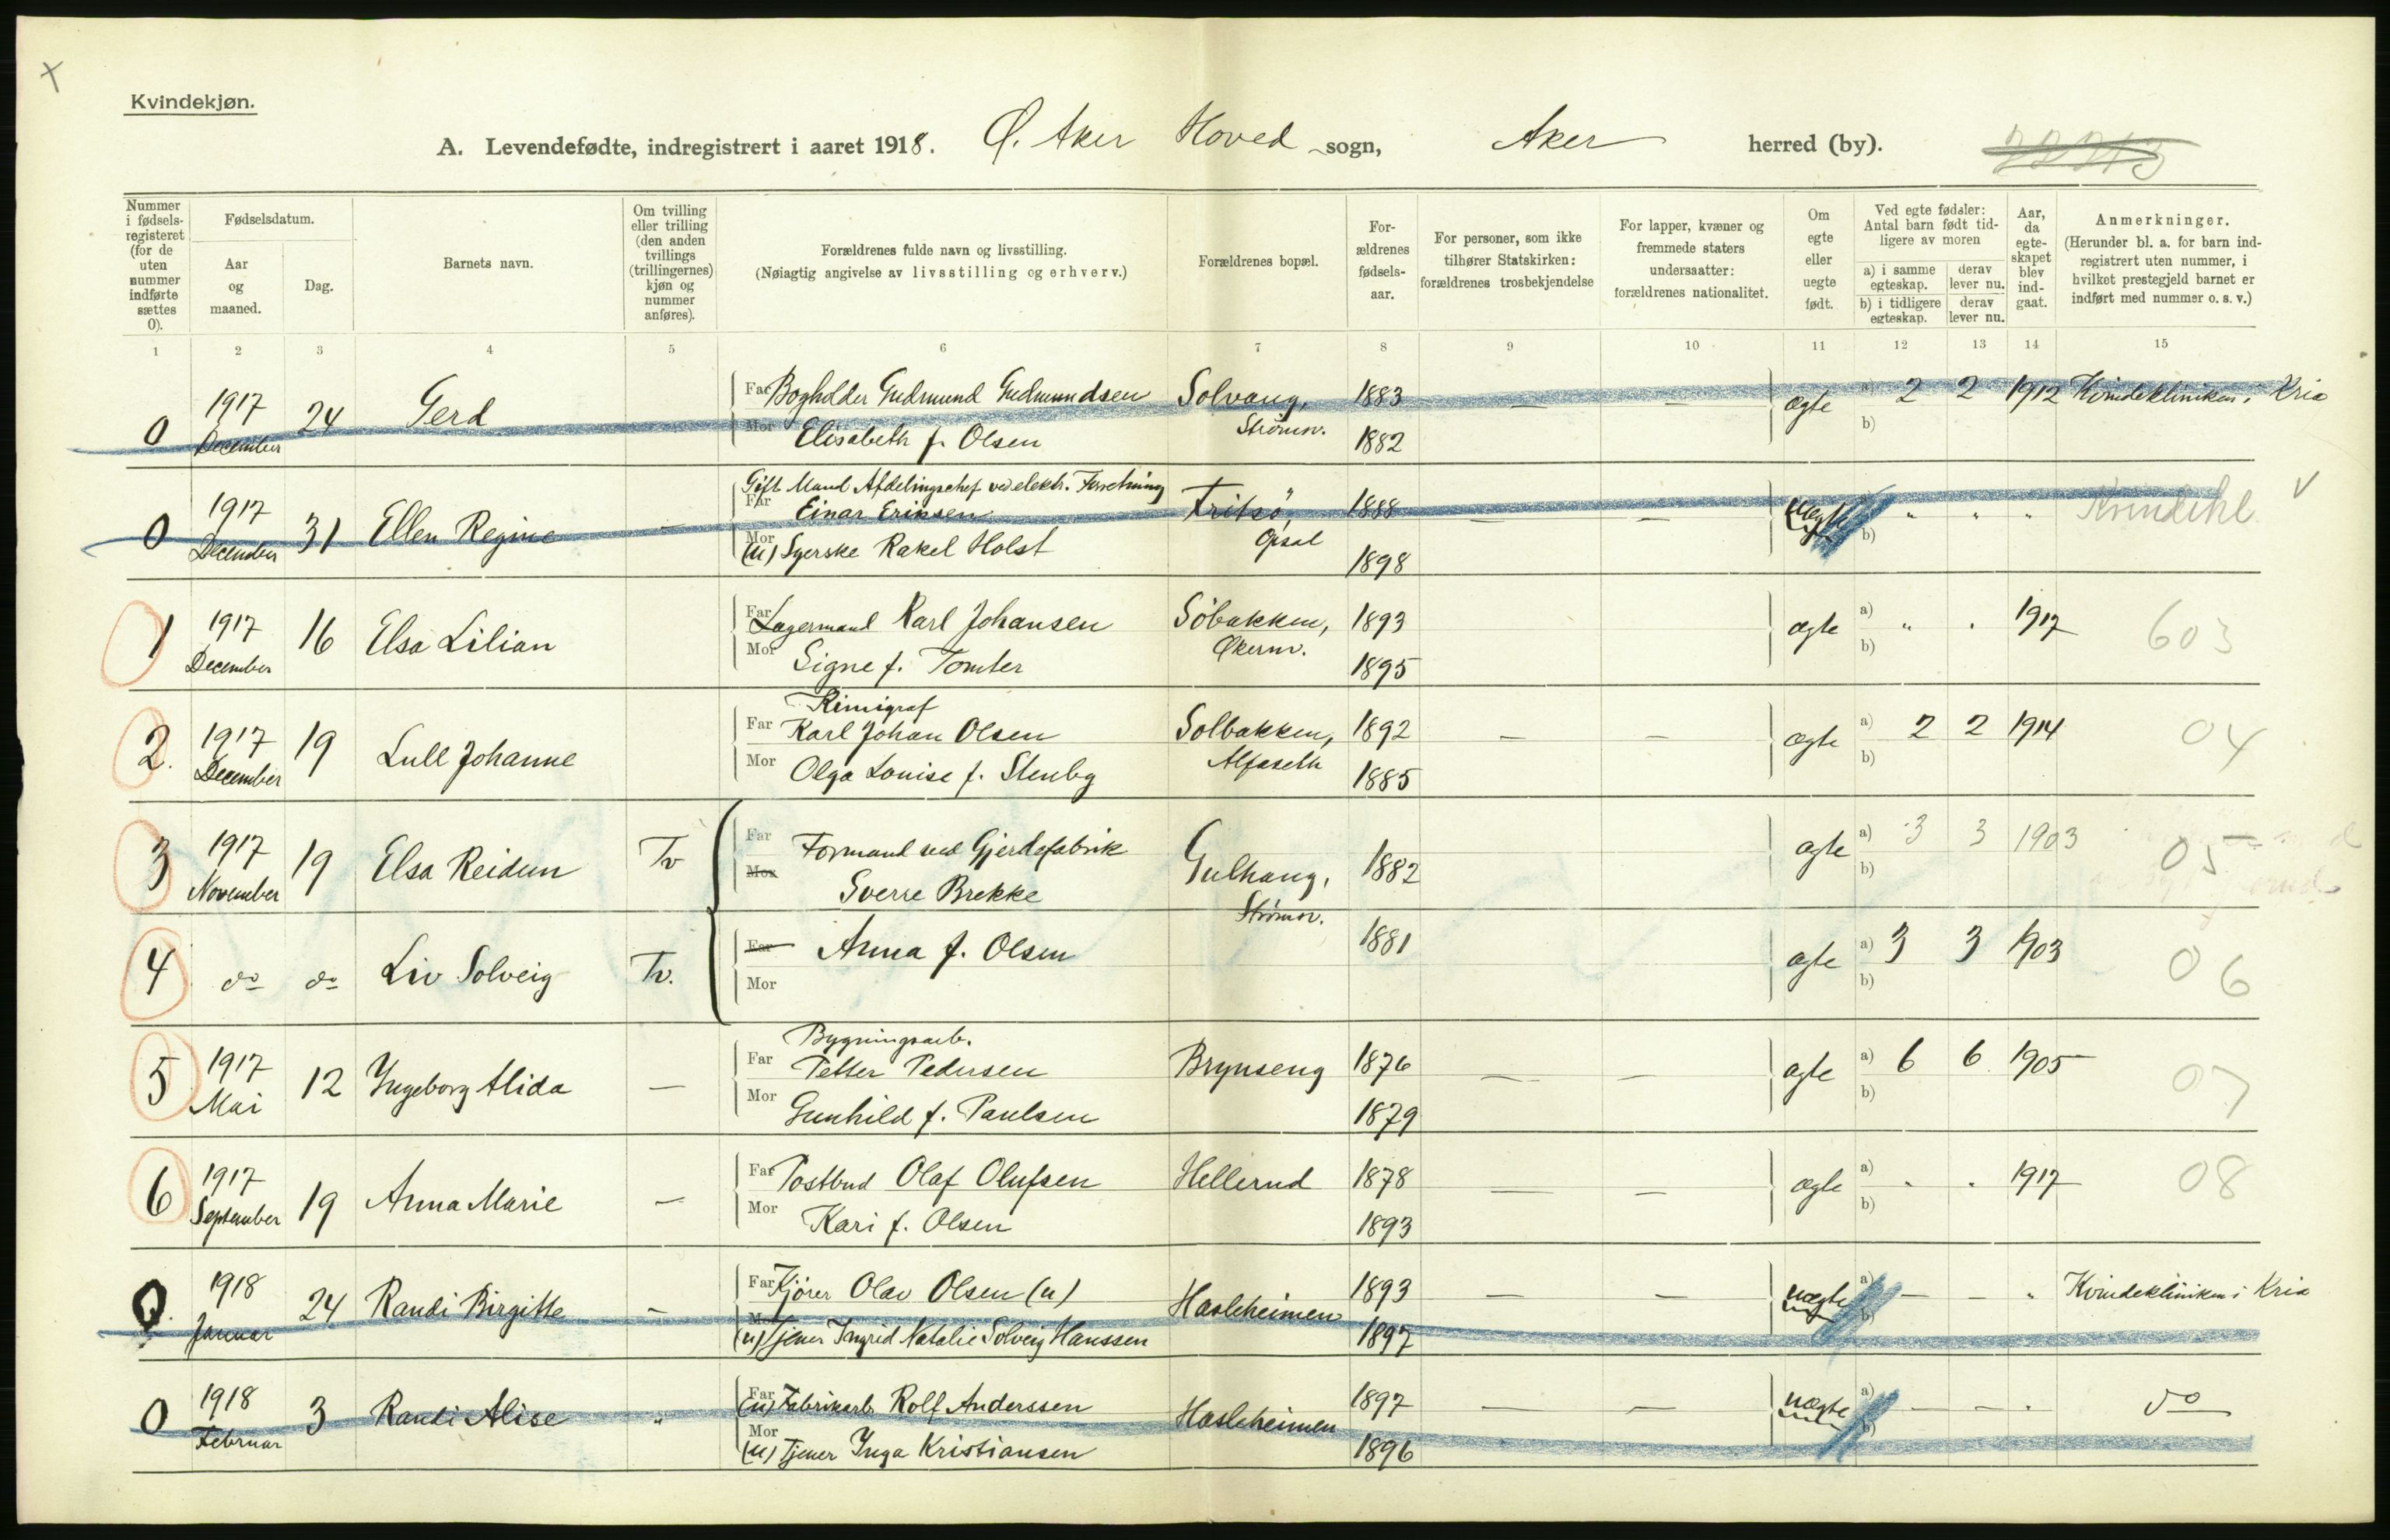 Kvindekjøn.
A. Levendefødte, indregistrert i aaret 1918. Ø. Aker Hoved sogn, Aker herred (by).
Nummer i fødsels-registeret (for de uten nummer indførte sættes 0).
Fødselsdatum.
Aar og maaned.
Dag.
Barnets navn.
Om tvilling eller trilling (den anden tvillings (trillingernes) kjøn og nummer anføres).
Forældrenes fulde navn og livsstilling.
(Nøiagtig angivelse av livsstilling og erhverv.)
Forældrenes bopæl.
For-ældrenes fødsels-aar.
For personer, som ikke tilhører Statskirken: forældrenes trosbekjendelse
For lapper, kvæner og fremmede staters undersaatter: forældrenes nationalitet.
Om egte eller uegte født.
Ved egte fødsler: Antal barn født tid-ligere av moren
a) i samme egteskap.
derav lever nu.
b) i tidligere egteskap.
derav lever nu.
Aar, da egte-skapet blev ind-gaat.
Anmerkninger.
(Herunder bl. a. for barn ind-registrert uten nummer, i hvilket prestegjeld barnet er indført med nummer o. s. v.)
1 2 3 4 5 6 7 8 9 10 11 12 13 14 15
0 1917 December 24 Gerd
Far Bogholder Gudmund Gudmundsen Solvang, Strømv. 1883 — — ægte a) 2 2 1912 Kvindekliniken i Kria
Mor Elisabeth f. Olsen 1882 b)
0 1917 December 31 Ellen Regine —
Gift Mand Afdelingschef ved elektr. Forretning
Far Einar Eriksen Fritsø, Opsal 1888 — — uægte " " " Kvindekl
Mor (u) Syerske Rakel Holst 1898 b)
1 1917 December 16 Elsa Lilian
Far Lagermand Karl Johansen Söbakken, Økernv. 1893 ægte a) " . 1917 603
Mor Signe f. Tomter 1895 b)
2. 1917 December 19 Lull Johanne
Kinigraf
Far Karl Johan Olsen Solbakken, Alfaseth 1892 — — ægte a) 2 2 1914 04
Mor Olga Louise f. Stenbg 1885 b)
3 1917 November 19 Elsa Reidun Tv
Far Formand ved Gjerdefabrik Gulhaug, Strømv. 1882 ægte a) 3 3 1903 05
Mor Sverre Brekke b)
4 do do Liv Solveig Tv.
Far Anna f. Olsen 1881 ægte a) 3 3 1903 06
Mor b)
5 1917 Mai 12 Ingeborg Alida —
Bygningsarb.
Far Petter Pedersen Brynseng 1876 — — ægte a) 6 6 1905 07
Mor Gunhild f. Paulsen 1879 b)
6 1917 September 19 Anna Marie —
Far Postbud Olaf Olufsen Hellerud 1878 — — ægte a) " . 1917 08
Mor Kari f. Olsen 1893 b)
0. 1918 Januar 24 Randi Birgitte —
Far Kjører Olav Olsen (u) Hasleheimen 1893 — — uægte a) — — " Kvindekliniken i Kria
(u) Tjener Ingrid Natalie Solveig Hanssen 1897
0 1918 Februar 3 Randi Alise "
Far (u) Fabrikarb. Rolf Anderssen Hasleheimen 1897 — — uægte a) — — . do
Mor (u) Tjener Inga Kristiansen 1896